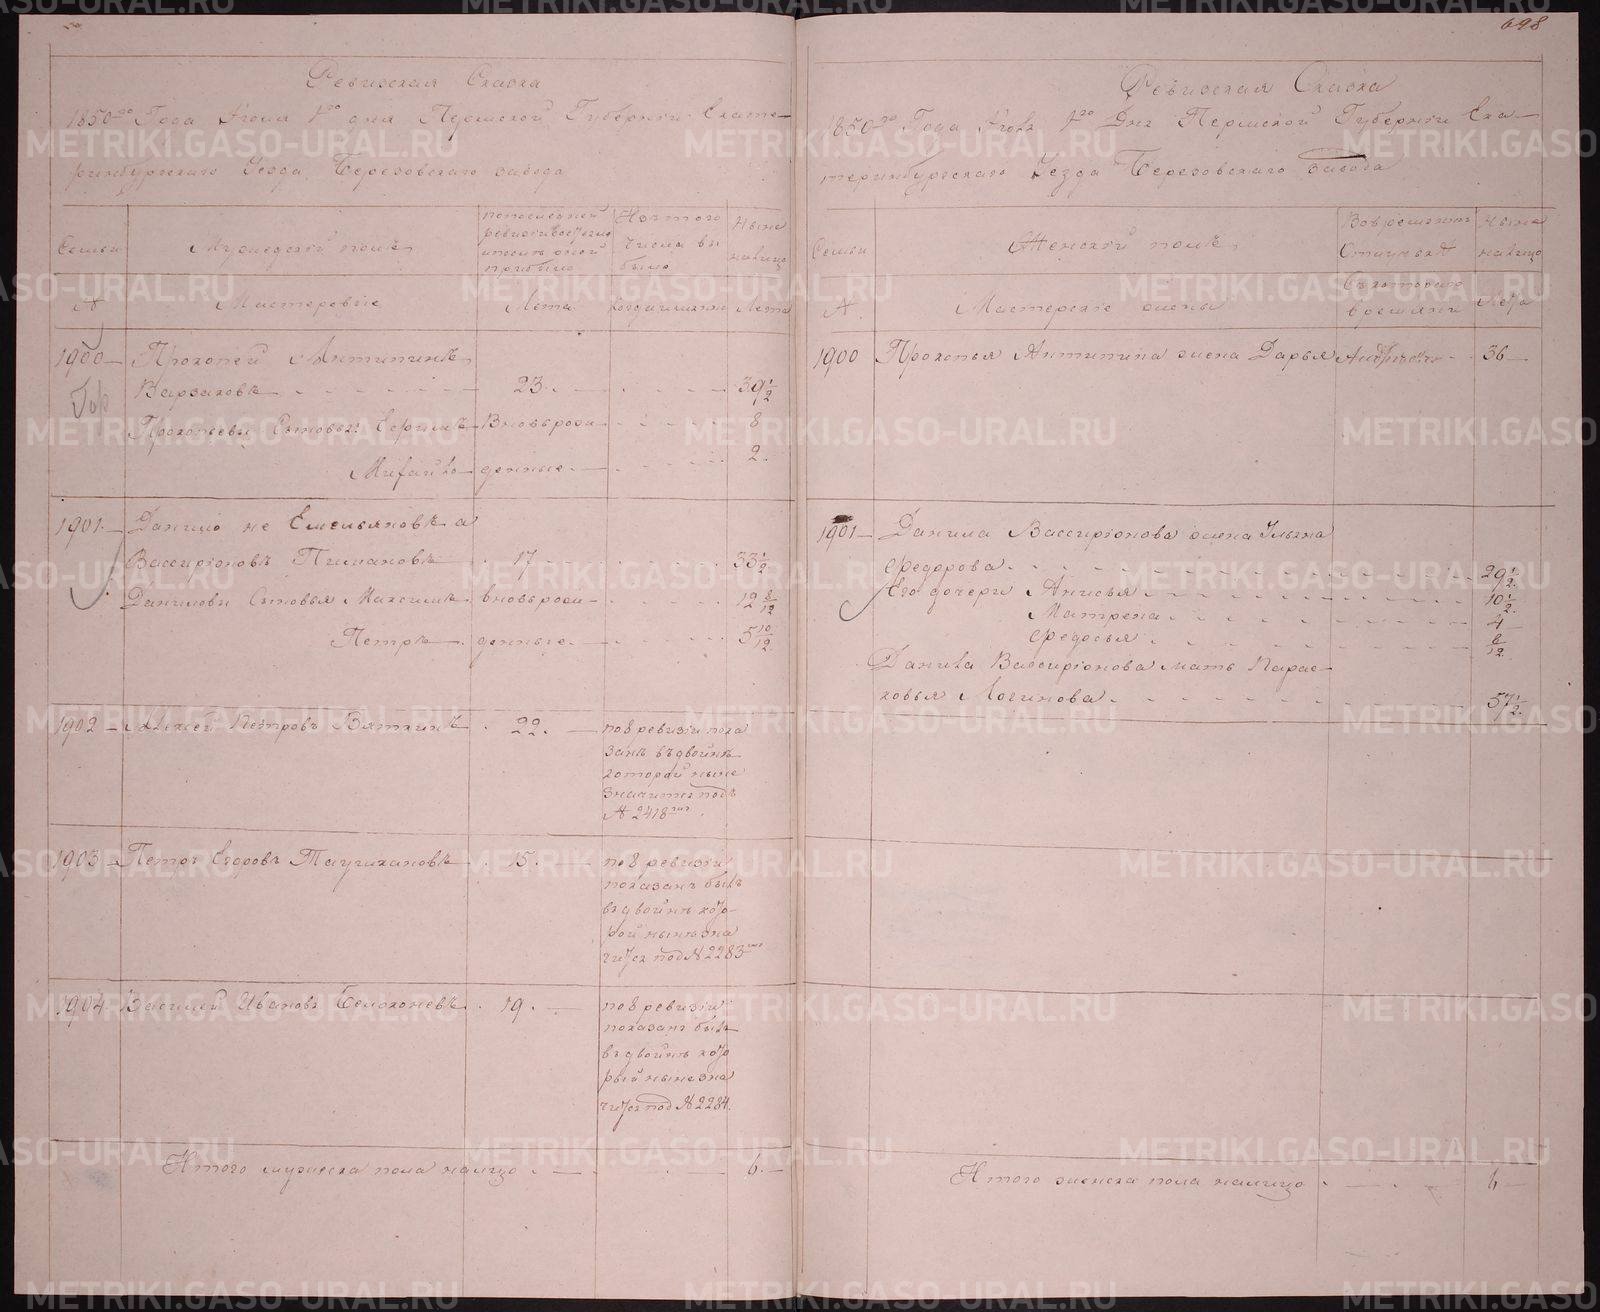 698
Ревизская Сказка
1850го Года Июля 1го дня Пермской Губерніи Екате-
ринбургскаго Уезда Березовскаго завода
Семьи
Мужеский полъ
Изъ того числа выбыло
Ныне на лицо
№
Мастеровые
Лета
Когда именно
Лета
1900 Прокопей Антипинъ
Варзаковъ 23 39 1/2
Прокопьевы Сыновья: Сергилъ Вновьрож- 8
денные 2
1901 Данило не Емельяновъ а
Вассиріоновъ Пимановъ 17 33 1/2
Даниловы Сыновья Максимъ вновьрож- 12 8/12
Петръ денные 5 10/12
1902 Алексей Петровъ Вяткинъ 22 по 8 ревизіи пока
занъ въ двойнѣ
которой ныне
значится подъ
№ 2418
1903 Петръ Егоровъ 15 по 8 ревизіи
показанъ былъ
въ двойнѣ кото-
рой нынѣ зна
чится под № 2283
1904 Василий Ивановъ Белоконевъ 19 по 8 ревизіи
показанъ былъ
въ двойнѣ кото
рый ныне зна
чится под № 2284
Итого мужеска пола налицо 6
Ревизская Сказка
1850го Года Июля 1го Дня Пермской Губерніи Ека-
теринбургскаго Уезда Березовскаго завода
Семьи
Женскій полъ
Во временной Отлучкѣ
Ныне на лицо
№
Мастерскіе жены
Съ котораго времяни
Лета
1900 Прокопья Антипина жена Дарья 36
1901 Данила Вассиріонова жена Ульяна
Федорова 29 1/2
Его дочери Анисья 10 1/2
Матрена 4
Федосья 8/12
Данила Вассиріонова мать Парас-
ковья Логинова 57 1/2
Итого женска пола налицо 6
METRIKI.GASO-URAL.RU